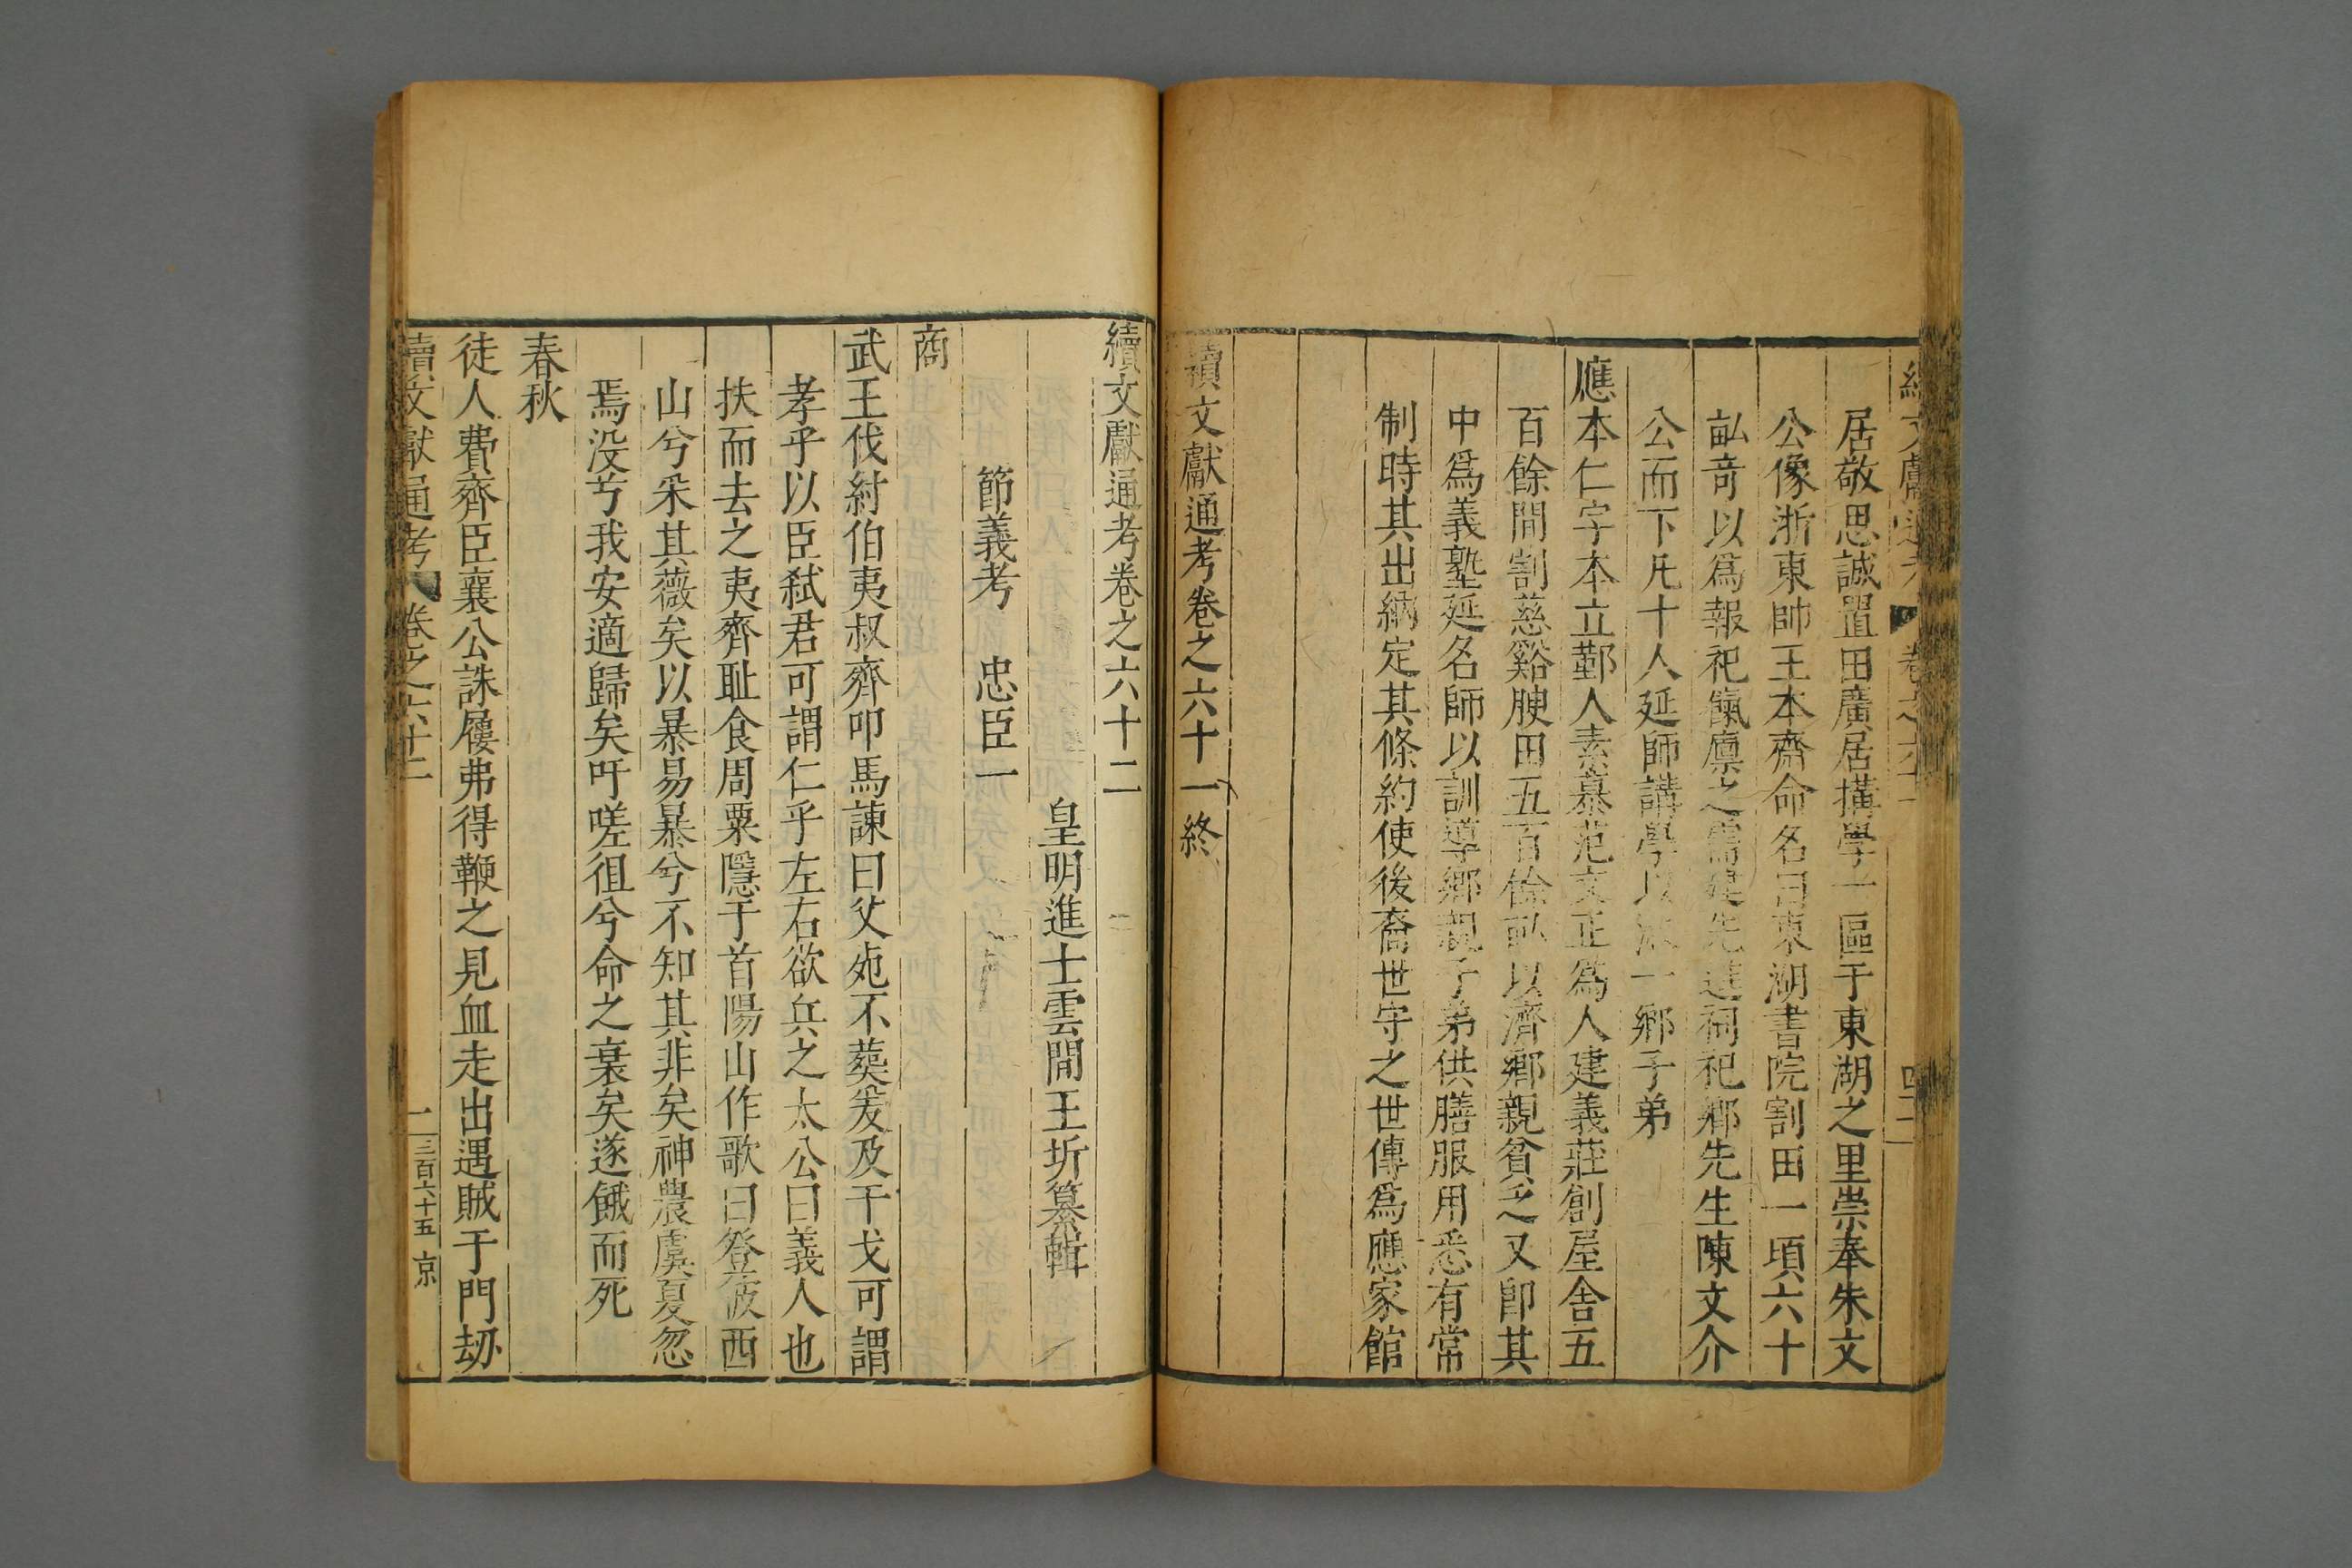 續文獻通考 卷之六十一 四十二
居敬思誠置田廣居搆學一區于東湖之里崇奉朱文
公像浙東帥王本齋命名曰東湖書院割田一頃六十
畆竒以爲報祀餼廪之需建先達祠祀鄉先生陳文介
公而下凡十人延師講學以淑一鄉子弟
應本仁字本立鄞人素慕范文正爲人建義莊創屋舍五
百餘間割慈谿腴田五百餘畆以濟鄉親貧乏又卽其
中爲義塾延名師以訓導鄉親子弟供膳服用悉有常
制時其出納定其條約使後裔世守之世傳爲應家館
續文獻通考卷之六十一終
續文獻通考卷之六十二
皇明進士雲間王圻纂輯
節義考 忠臣一
商
武王伐紂伯夷叔齊叩馬諫曰父死不葬爰及干戈可謂
孝乎以臣弑君可謂仁乎左右欲兵之太公曰義人也
扶而去之夷齊耻食周粟隱于首陽山作歌曰登彼西
山兮采其薇矣以暴易暴兮不知其非矣神農虞夏忽
焉没兮我安適歸矣吁嗟徂兮命之衰矣遂餓而死
春秋
徒人費齊臣襄公誅屨弗得鞭之見血走出遇賊于門刼
續文獻通考 卷之六十二 一 三百六十五 京